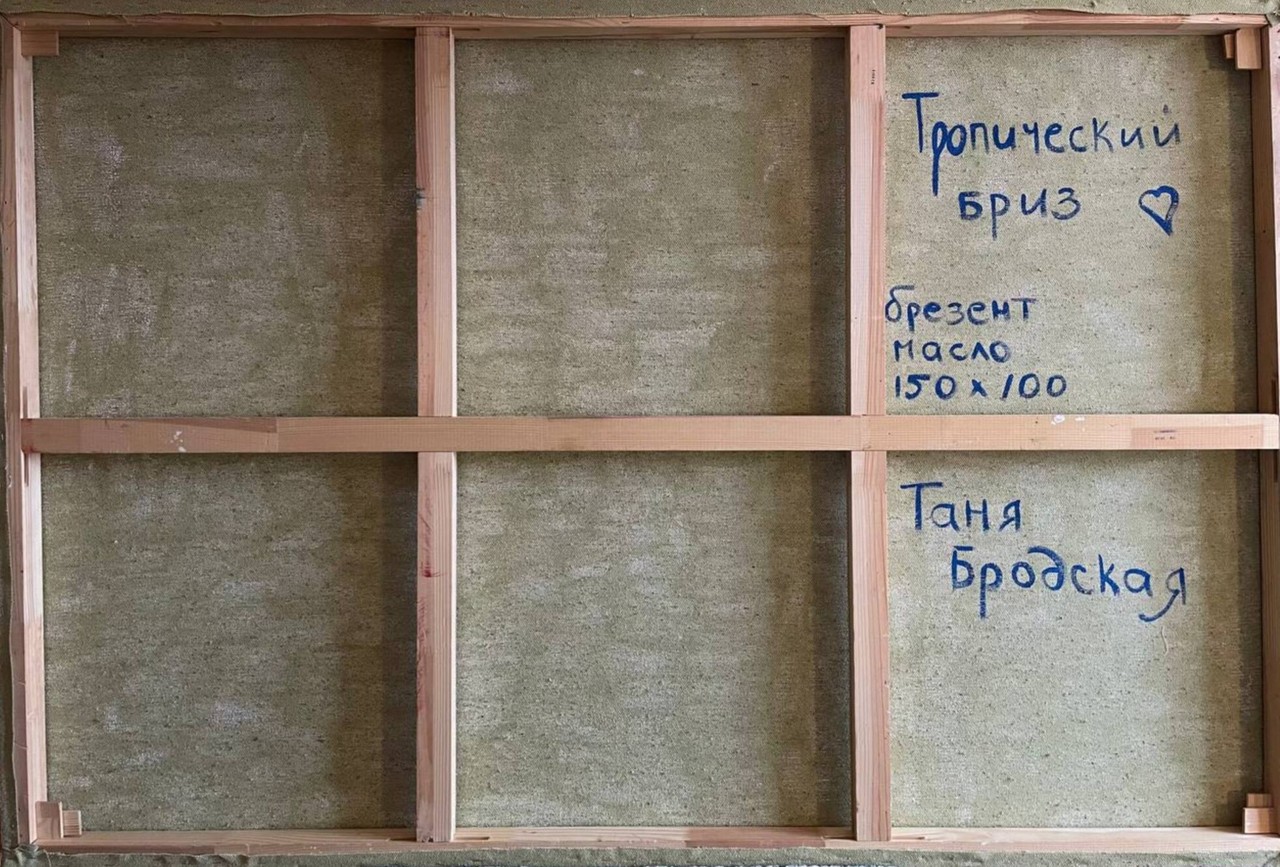 Тропический
бриз ♡
брезент
масло
150 x 100
Таня
Бродская